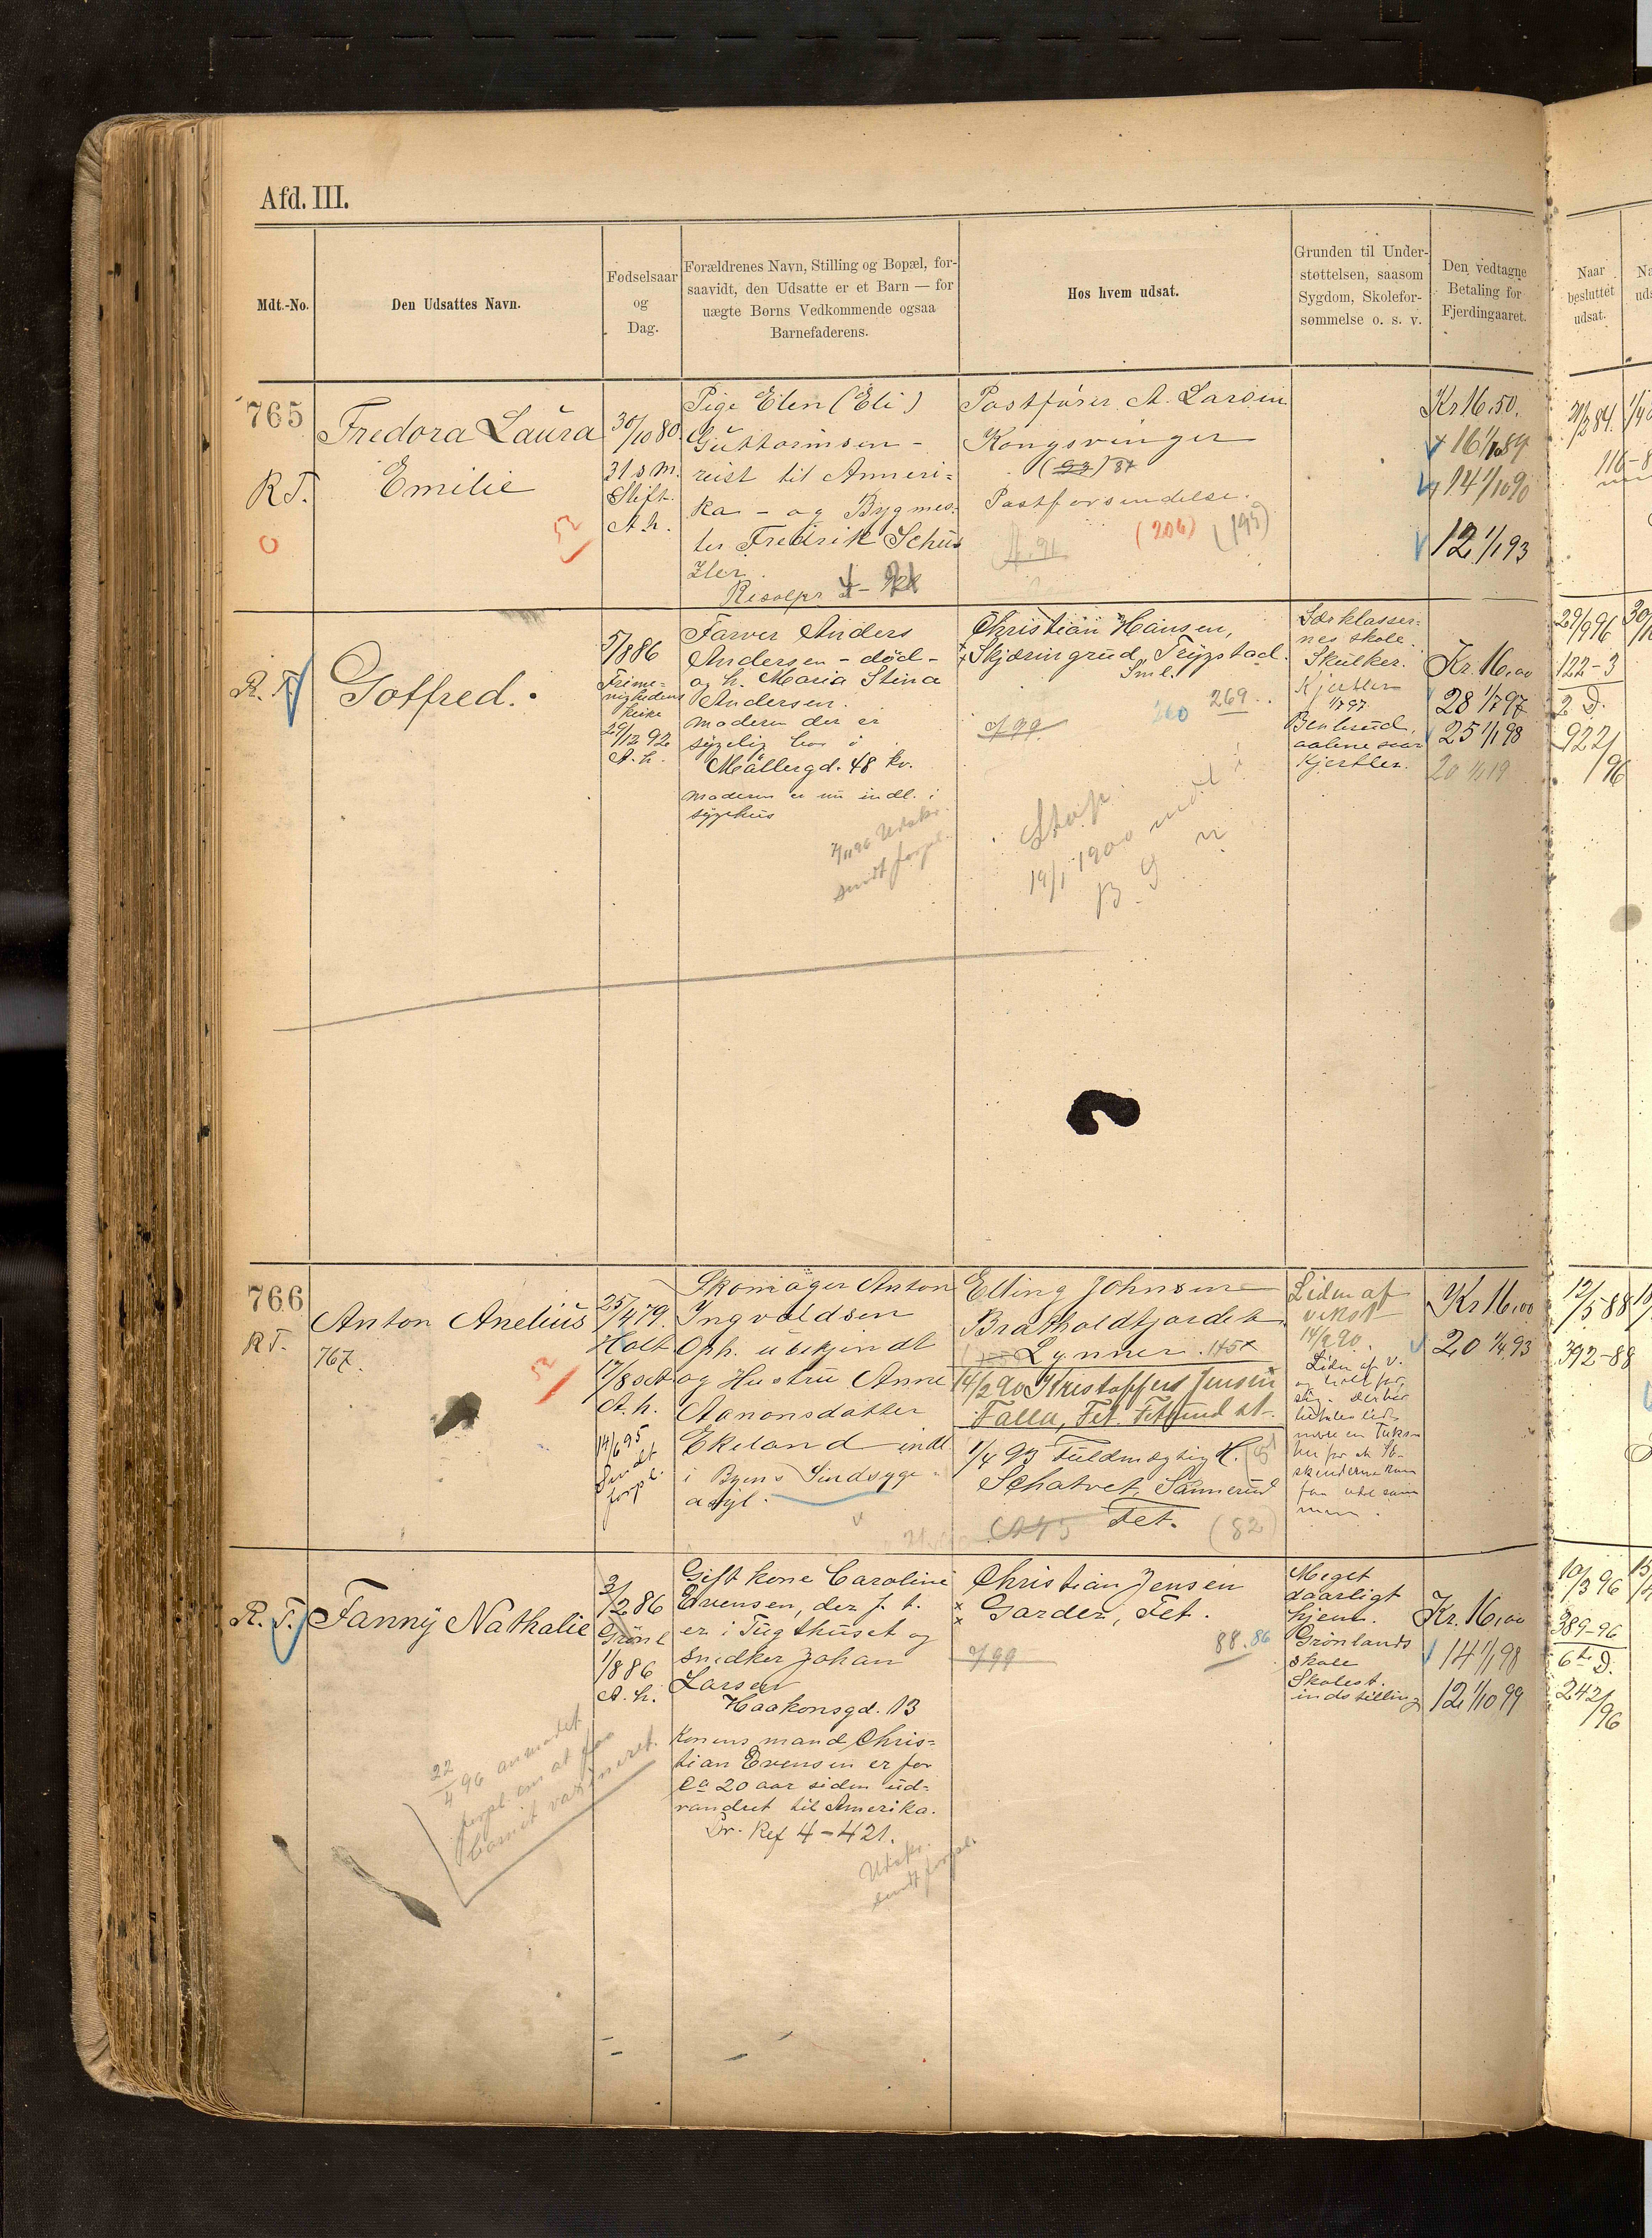 Afd. III.
Mdt.-No.
Den Udsattes Navn.
Fødselsaar
og
Dag.
Forældrenes Navn, Stilling og Bopæl, for-
saavidt, den Udsatte er et Barn — for
uægte Børns Vedkommende ogsaa
Barnefaderens.
Hos hvem udsat.
Grunden til Under-
støttelsen, saasom
Sygdom, Skolefor-
sømmelse o. s. v.
Den vedtagne
Betaling for
Fjerdingaaret.
Naar
besluttet
udsat.
765
R.T.
Fredora Laura
Emilie
30/10 80
Stift.
A.h.
Pige Elen (Eli)
Guttormsen -
reist til Anneri-
ka - og Bygmes-
ter Fredrik Schus
zler
Postfører A. Larsen
Kongsvinger
Postforsendelse.
(206) (195)
Kr 16.50.
16 1/10 89
14 1/10 90
12 1/1 93
21/3 84.
R. T.
Gotfred.
5/8 86
Frime-
nighedens
A.h.
Farver Anders
Andersen - død -
og h. Maria Stina
Andersen.
Moderen der er
sygelig bor i
Møllergd. 48 kv.
Moderen er nu indl. i
sygehus
Udskr.
sendt forpl.
Christian Hansen,
Skjæringrud, Trygstad.
Sml.
260 269
q/99
Stop.
19/1 1900
Særklasser-
nes skole.
Skulker.
Kjertler
1/7 97
Kjertler.
Kr. 16,00
28 1/7 97
25 1/1 98
29/9 96
122-3
2 D.
922/
/96
766
R.T.
Anton Anelius
767.
25/4 79.
Holt
17/8 s.A.
A.h.
14/6 95
Sendt
forpl.
Skomager Anton
Ingvaldsen
Oph. ubekjendt
og Hustru Anne
Aanonsdatter
Ekeland indl.
i Byens Sindsyge-
asyl.
Elling Johnsen
Bratholdtjordet
Lynner.
14/2 90 Kristoffer Jensen
Falla, Fet. Fetsund st.
1/4 93 Fuldmægtig H.
Schatvet, Sannerud
Fet. (82)
Liden af
vekst
14/2 90.
Liden af v.
Kr 16,00
20 1/4 93
12/5 88
392-88
R. T.
Fanny Nathalie
3/2 86
Grønl
1/8 86
A.h.
22/4 96 anmodet
forpl. om at faa
barnet vaxineret.
Gift kone Caroline
Evensen, der f. t.
er i Tugthuset og
snedker Johan
Larsen
Haakonsgd. 13
Konens mand Chris-
tian Evensen er for
ca 20 aar siden ud-
vandret til Amerika.
Pr. Ref 4-421.
Udskr.
sendt forpl.
Christian Jensen
Garder, Fet.
88. 86
q/99
Meget
daarligt
hjem.
Grønlands
skole
Skolest.
indstilling
Kr. 16,00
14 1/1 98
12 1/10 99
10/3 96
389-96
6te D.
242/
/96